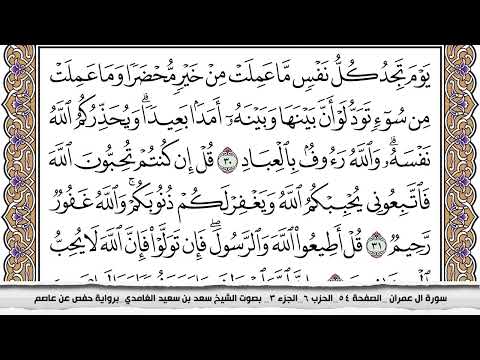 يَوْمَ تَجِدُ كُلُّ نَفْسٍ مَّا عَمِلَتْ مِنْ خَيْرٍ مُّحْضَرًا وَمَا عَمِلَتْ
مِن سُوٓءٍ تَوَدُّ لَوْ أَنَّ بَيْنَهَا وَبَيْنَهُۥٓ أَمَدًۢا بَعِيدًا ۗ وَيُحَذِّرُكُمُ ٱللَّهُ
نَفْسَهُۥ ۗ وَٱللَّهُ رَءُوفٌۢ بِٱلْعِبَادِ ٣٠ قُلْ إِن كُنتُمْ تُحِبُّونَ ٱللَّهَ
فَٱتَّبِعُونِى يُحْبِبْكُمُ ٱللَّهُ وَيَغْفِرْ لَكُمْ ذُنُوبَكُمْ ۗ وَٱللَّهُ غَفُورٌ
رَّحِيمٌ ٣١ قُلْ أَطِيعُوا۟ ٱللَّهَ وَٱلرَّسُولَ ۖ فَإِن تَوَلَّوْا۟ فَإِنَّ ٱللَّهَ لَا يُحِبُّ
سورة ال عمران _الصفحة ٥٤_ الحزب ٦_ الجزء ٣_ بصوت الشيخ سعد بن سعيد الغامدي_ برواية حفص عن عاصم